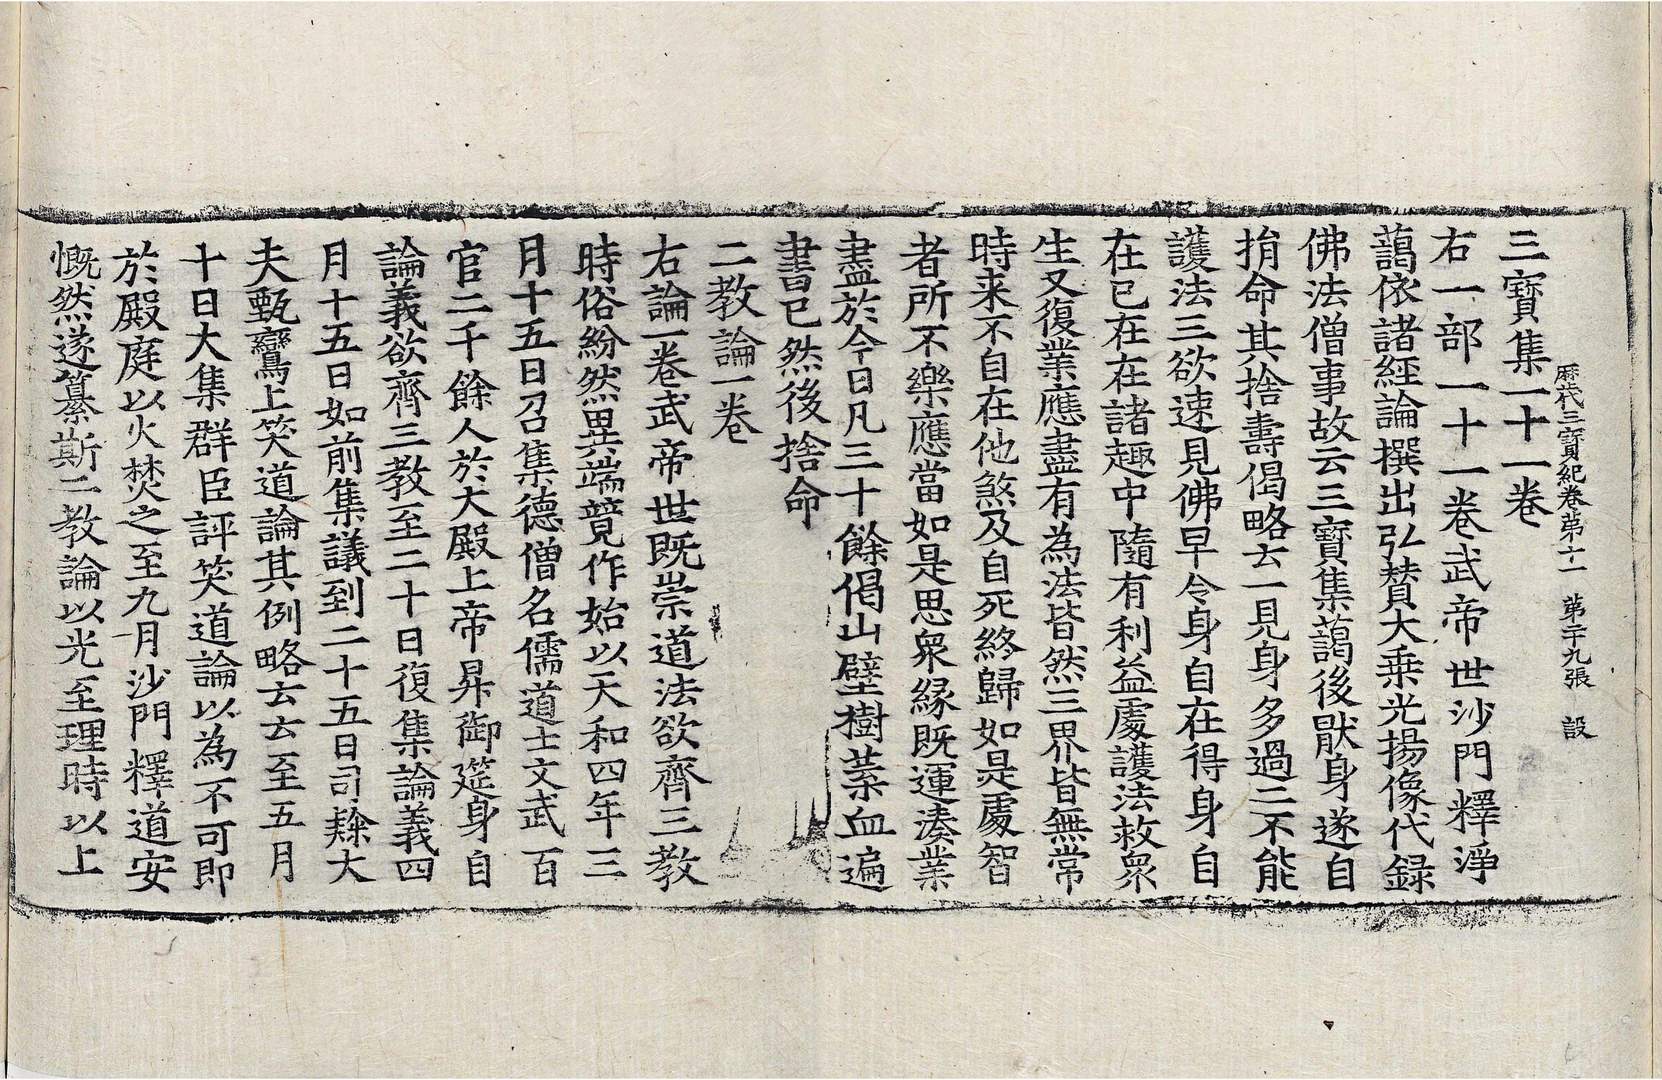 歷代三寶紀卷第十一　第二十九張　設
三寶集一十一卷
右一部一十一卷武帝世沙門釋淨
藹依諸經論撰出弘賛大乗光揚像代録
佛法僧事故云三寶集藹後猒身遂自
捐命其捨壽偈略云一見身多過二不能
護法三欲速見佛早令身自在得身自
在已在在諸趣中隨有利益處護法救衆
生又復業應盡有為法皆然三界皆無常
時来不自在他煞及自死終歸如是處智
者所不樂應當如是思衆緣既運湊業
盡於今日凡三十餘偈山壁樹葉血遍
書已然後捨命
二教論一卷
右論一卷武帝世既崇道法欲齊三教
時俗紛然異端競作始以天和四年三
月十五日召集德僧名儒道士文武百
官二千餘人於大殿上帝昇御筵身自
論義欲齊三教至二十日復集論義四
月十五日如前集議到二十五日司隸大
夫甄鸞上笑道論其例略云云至五月
十日大集群臣評笑道論以為不可即
於殿庭以火焚之至九月沙門釋道安
慨然遂纂斯二教論以光至理時以上